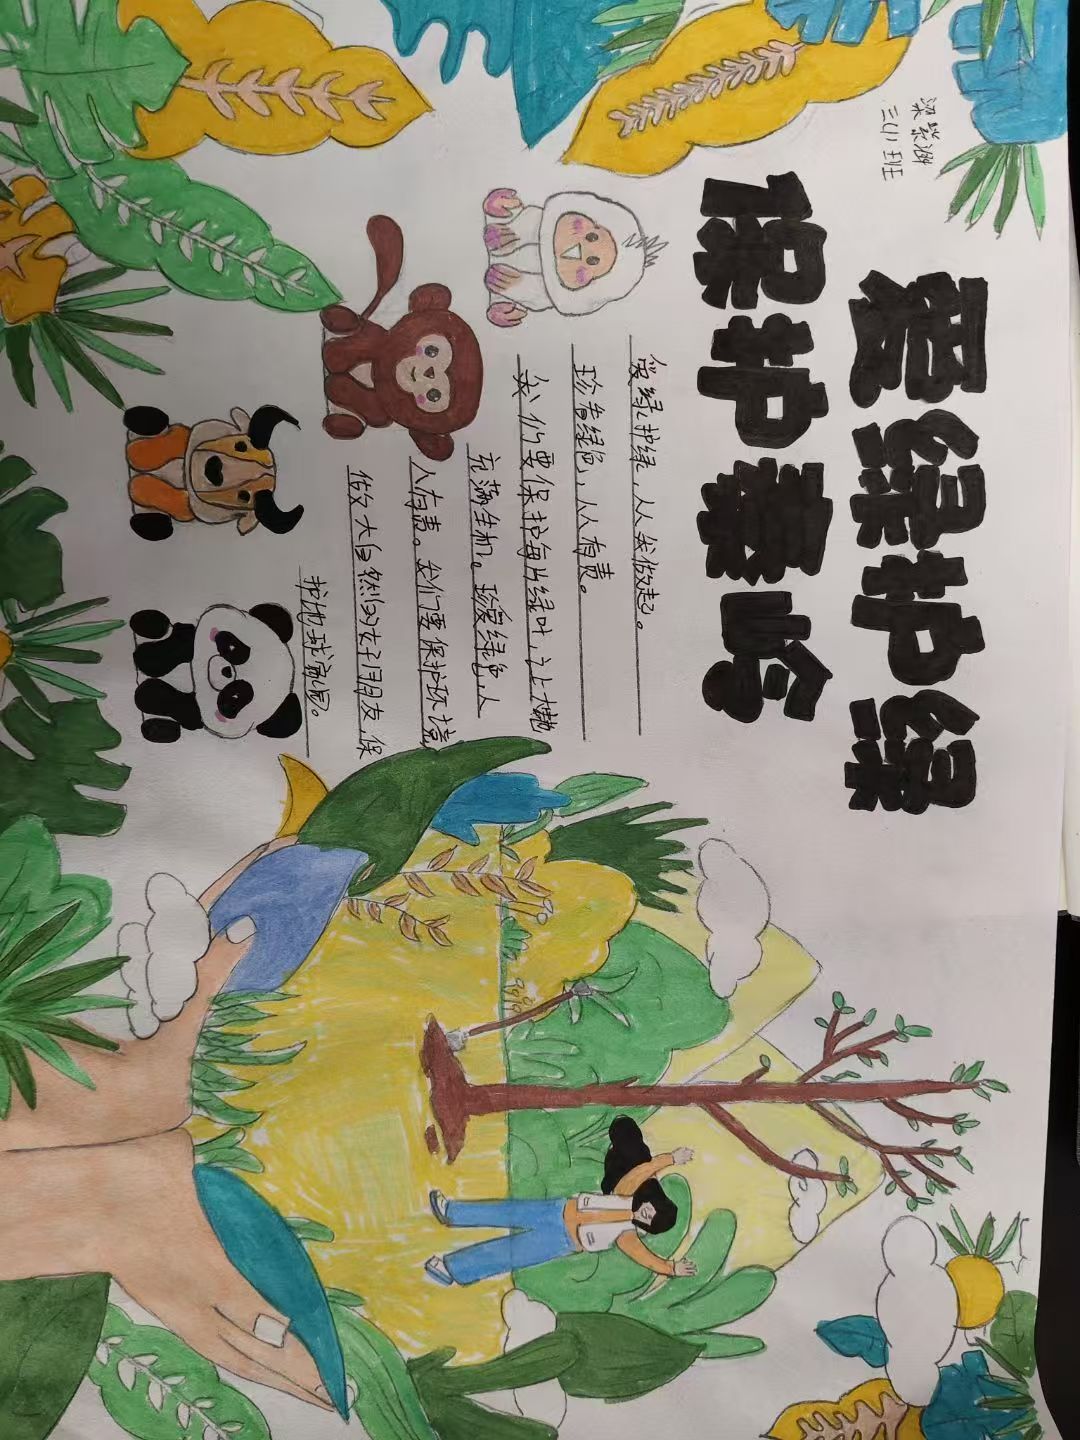 爱绿护绿
保护秦岭
三(1)班
爱绿护绿,从我做起。
珍惜绿色,从有责。
我们要保护每片绿叶,让大地
充满生机。珍爱绿色,人
人有责。我们要保护环境,
做大自然的好朋友,保
护地球家园。